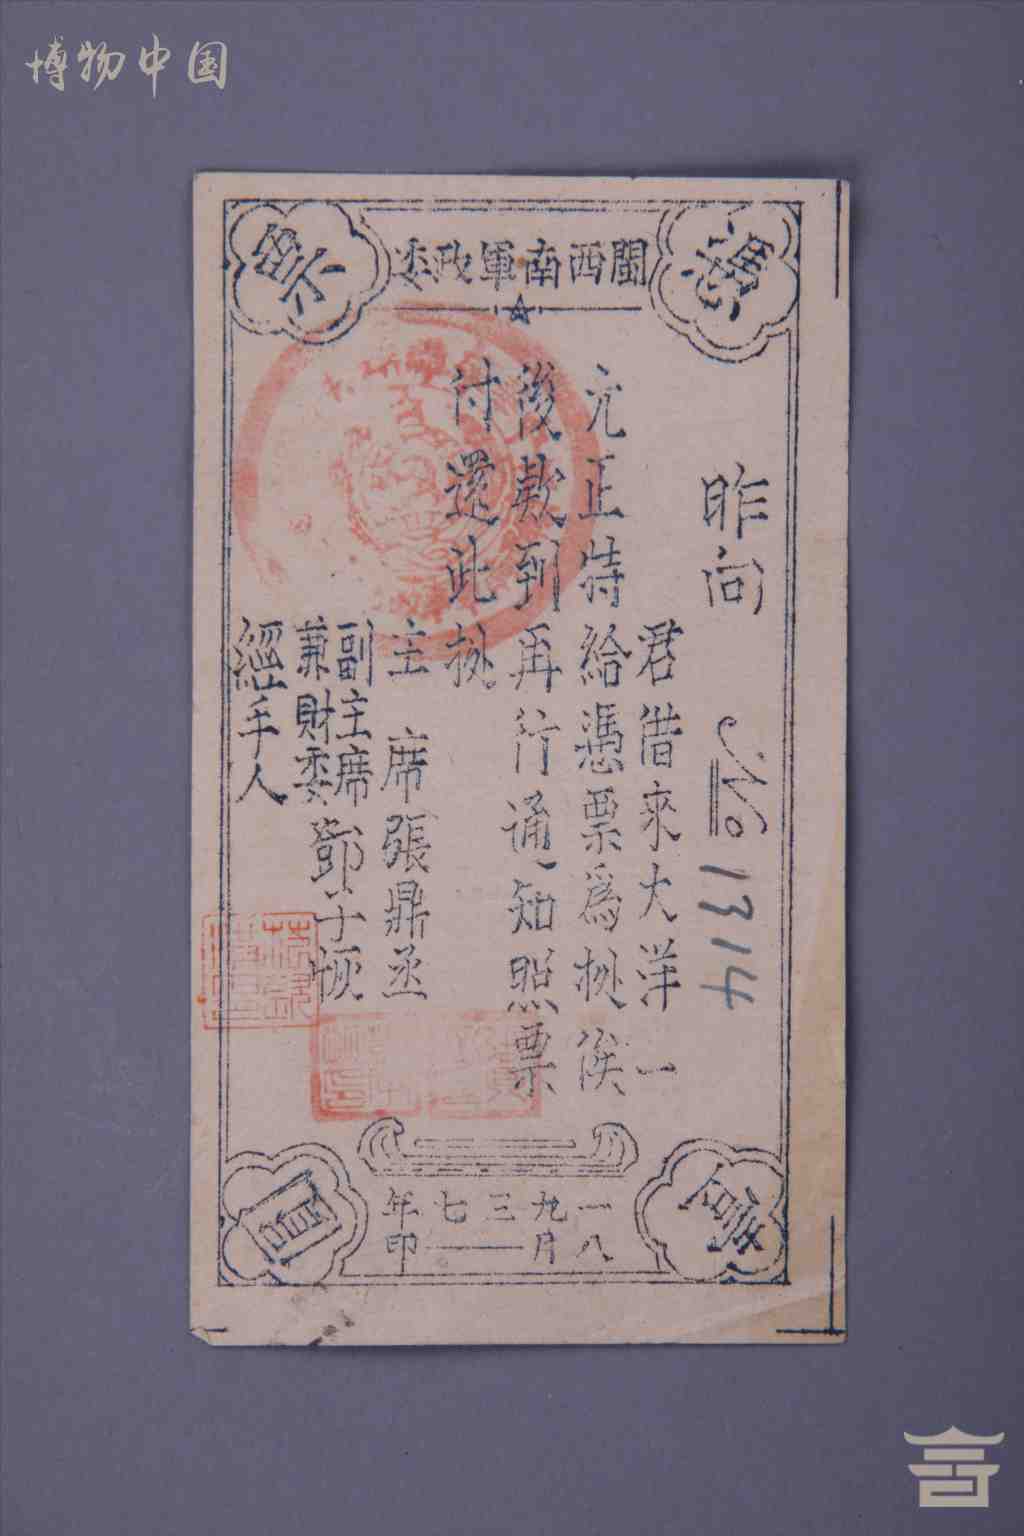 博物中国
憑
票
閩西南軍政委
昨向
№1314
君借來大洋一
元正特給憑票爲拠俟
後款到再行通知照票
付還此拠
主 席張鼎丞
副主席
兼財委
鄧子恢
經手人
壹
圓
一九三七年
八月一一印